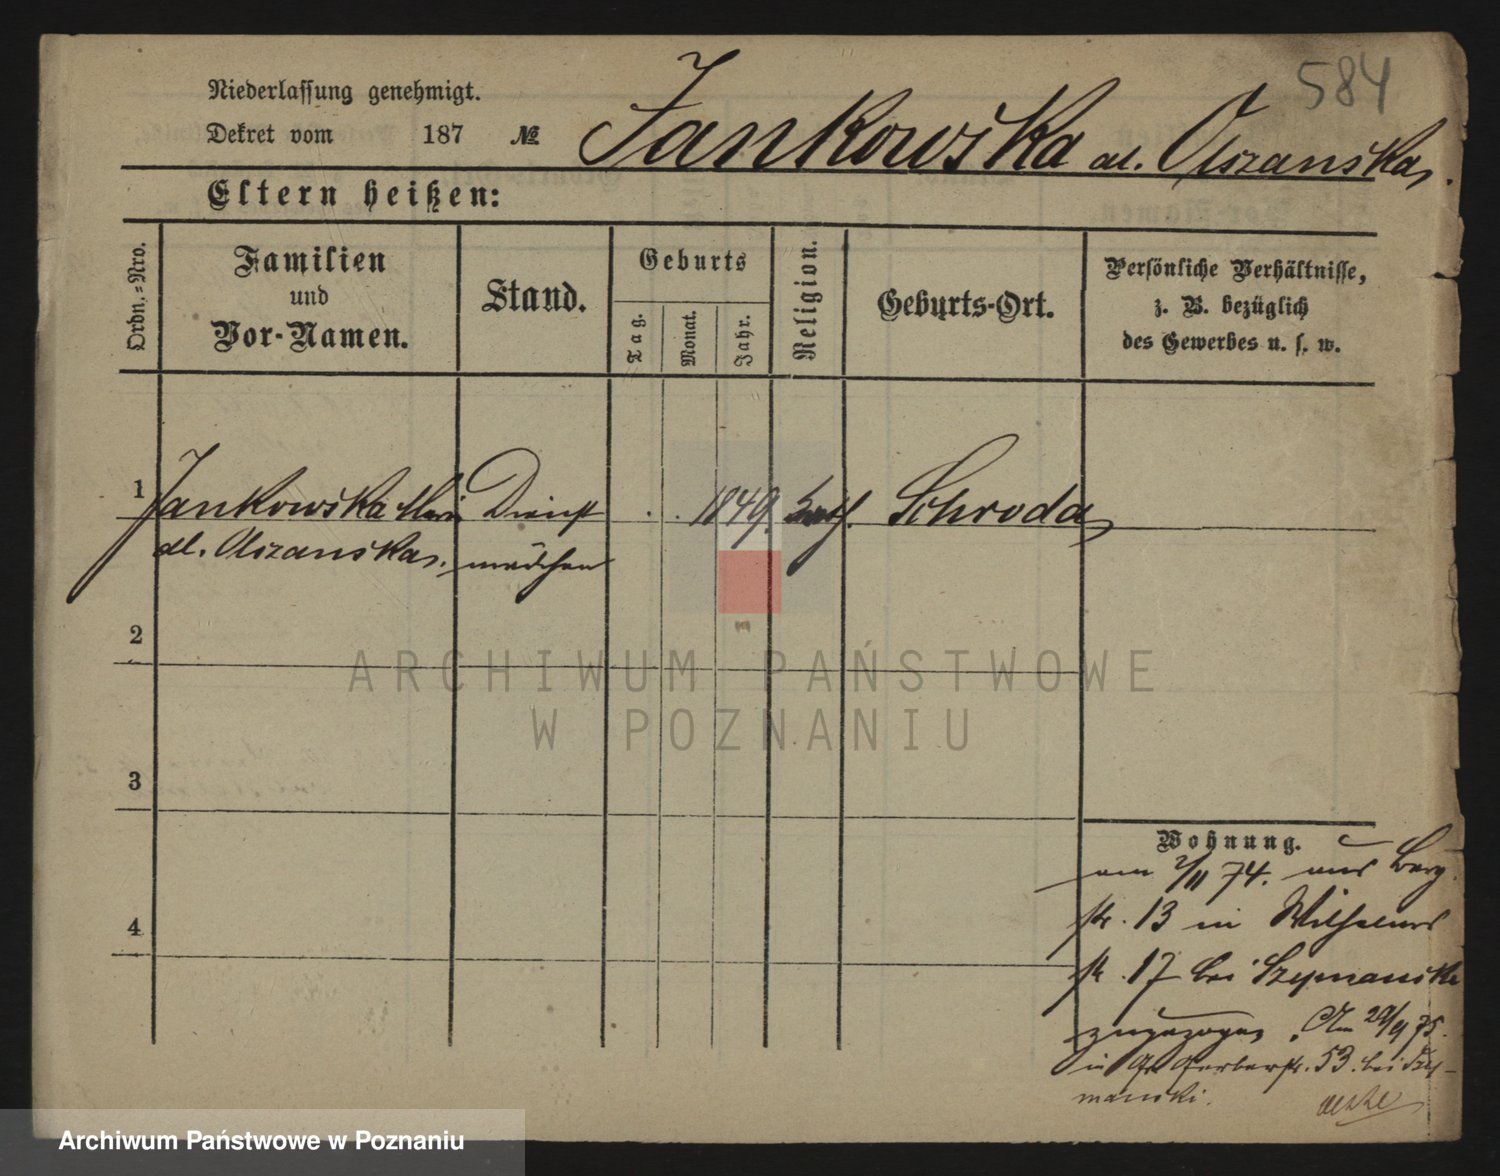 584
Niederlassung genehmigt.
Dekret vom 187 №
Jankowska al. Olszanska
Eltern heißen:
Ordn.=Nro.
Familien
und
Vor-Namen.
Stand.
Geburts
Tag.
Monat.
Jahr.
Religion.
Geburts-Ort.
Persönliche Verhältnisse,
z. B. bezüglich
des Gewerbes u. s. w.
1 Jankowska Dienst 1849. kath. Schroda
al. Olszanska. mädchen
2
3
4
Wohnung.
am 2/11 74. aus Berg
str. 13 in Wilhelms
str. 17 bei Szymanski
zugezogen. Am 29/9 75.
in Gr. Gerberstr. 53. bei Szy-
manski.
ARCHIWUM PAŃSTWOWE
W POZNANIU
Archiwum Państwowe w Poznaniu